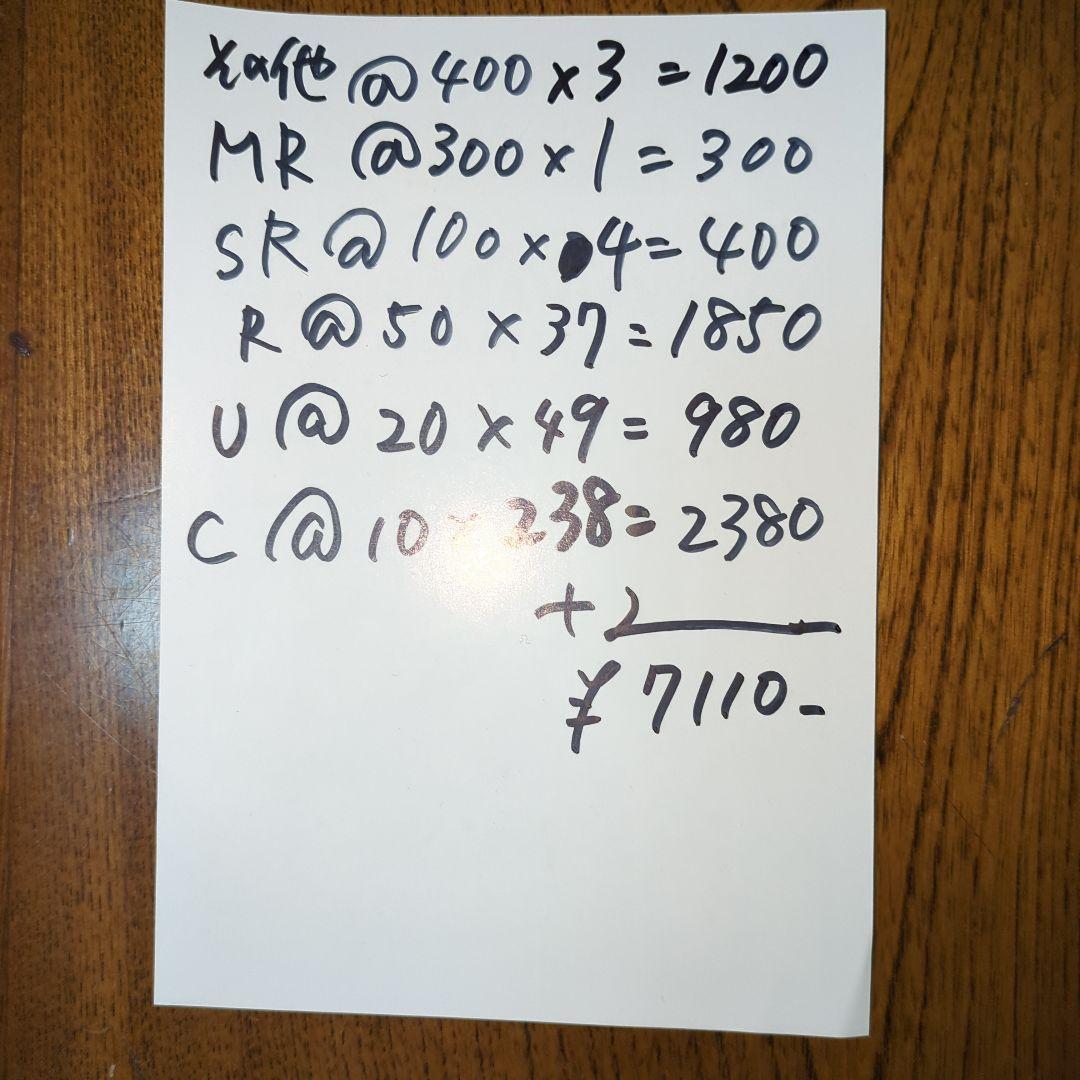 その他 @400×3=1200
MR @300×1=300
SR@100×4=400
R@50×37=1850
U@20×49=980
C@10×238=2380
+2
¥7110-